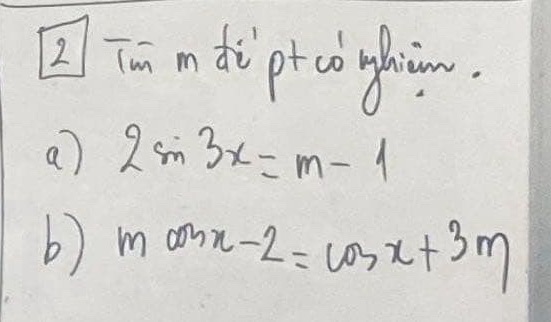 2 Tìm m để pt có nghiệm.
a) 2 sin 3x = m - 1
b) m cos x - 2 = cos x + 3m